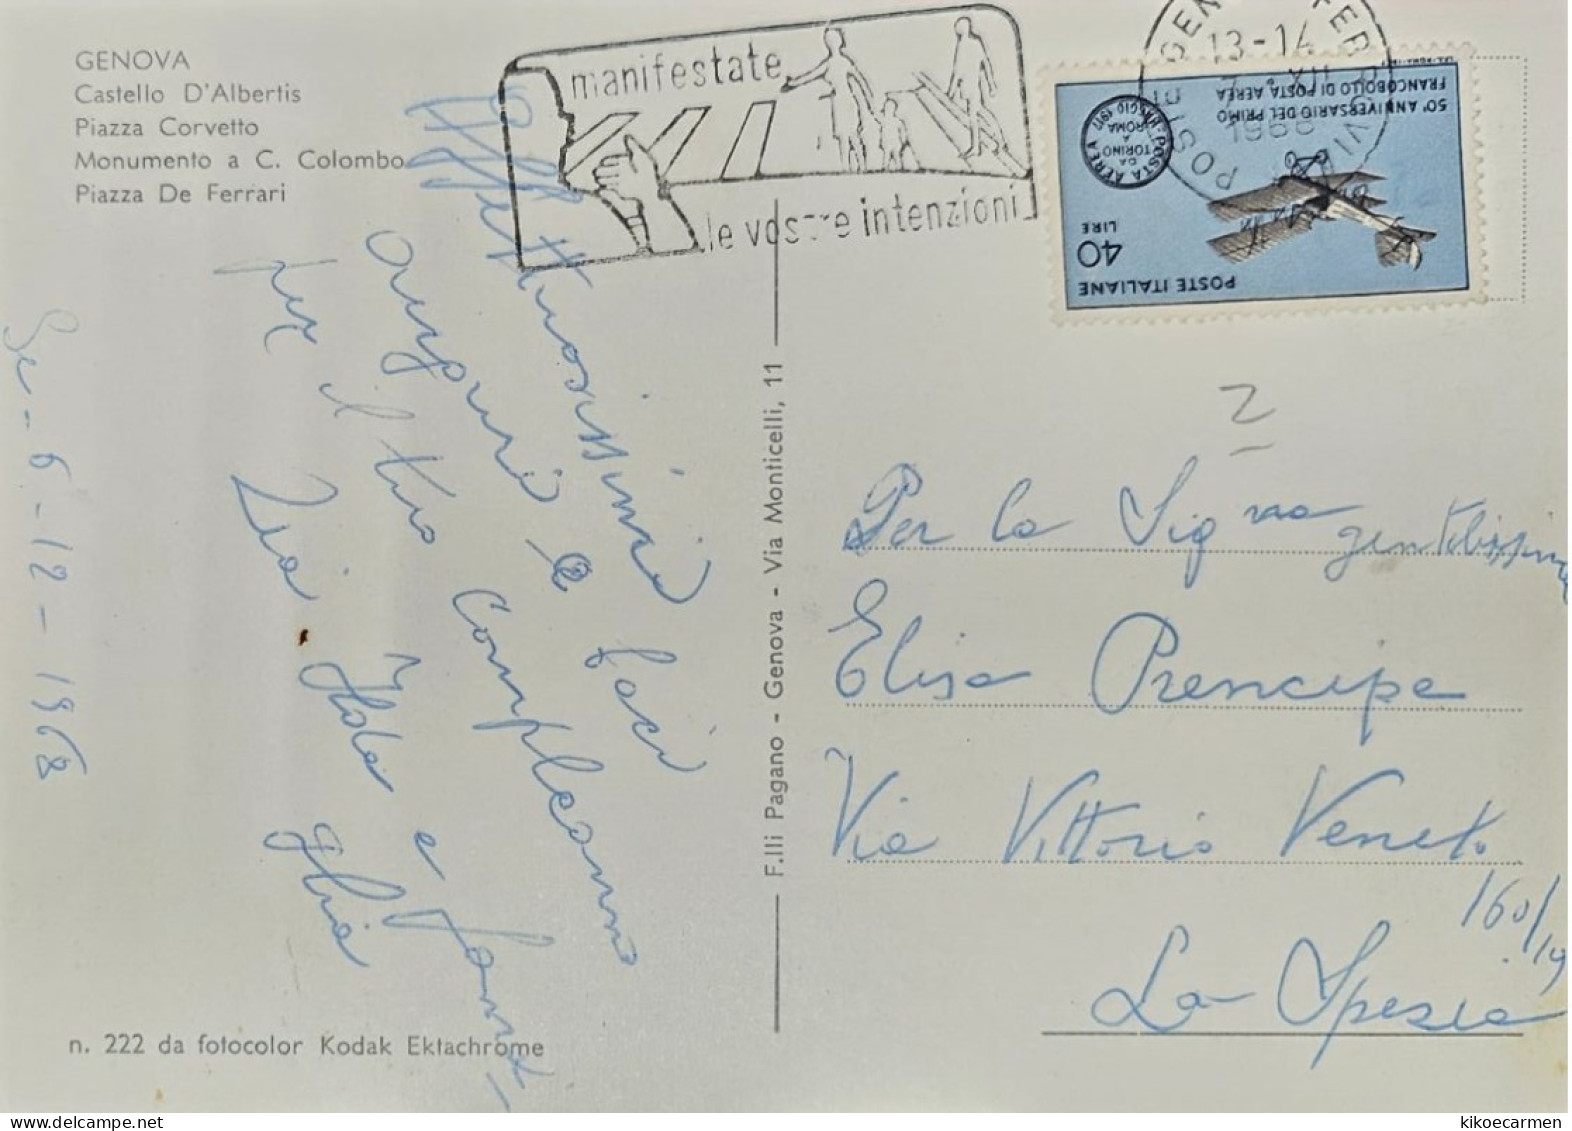 GENOVA
Castello D'Albertis
Piazza Corvetto
Monumento a C. Colombo
Piazza De Ferrari
manifestate
le vostre intenzioni
13-14
1968
50° ANNIVERSARIO DEL PRIMO
FRANCOBOLLO DI POSTA AEREA
ESPERIMENTO POSTA AEREA
MAGGIO 1917
DA
TORINO
A
ROMA
LIRE
40
POSTE ITALIANE
Ge - 6 - 12 - 1968
Affettuosissimi
auguri e baci
per il tuo compleanno
Zia Iole e fami-
glia
F.lli Pagano - Genova - Via Monticelli, 11
2
Per la Sig.ra gentilissima
Elisa Prencipe
Via Vittorio Veneto
160/19
La Spezia
n. 222 da fotocolor Kodak Ektachrome
kikoecarmen